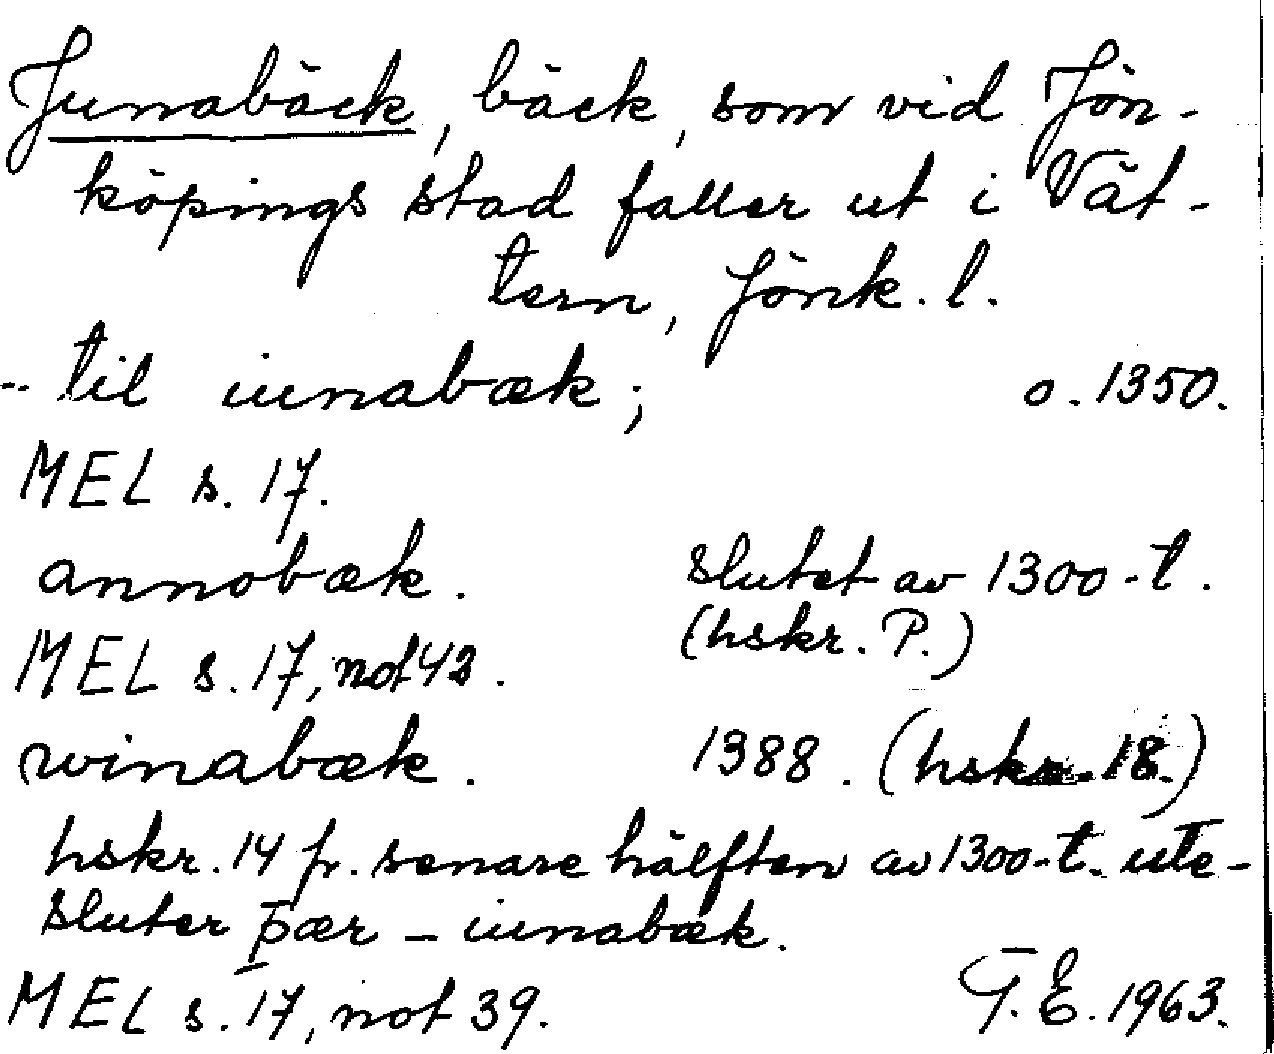 Junabäck, bäck, som vid Jön-
köpings stad faller ut i Vät-
tern, Jönk. l.
-- til iunabæk; o. 1350.
MEL s. 17.
annobæk. slutet av 1300-t.
(hskr. P.)
MEL s. 17, not 43.
winabæk. 1388. (hskr. 18.)
hskr. 14 fr. senare hälften av 1300-t. ute-
sluter þær - iunabæk.
MEL s. 17, not 39. T. E. 1963.